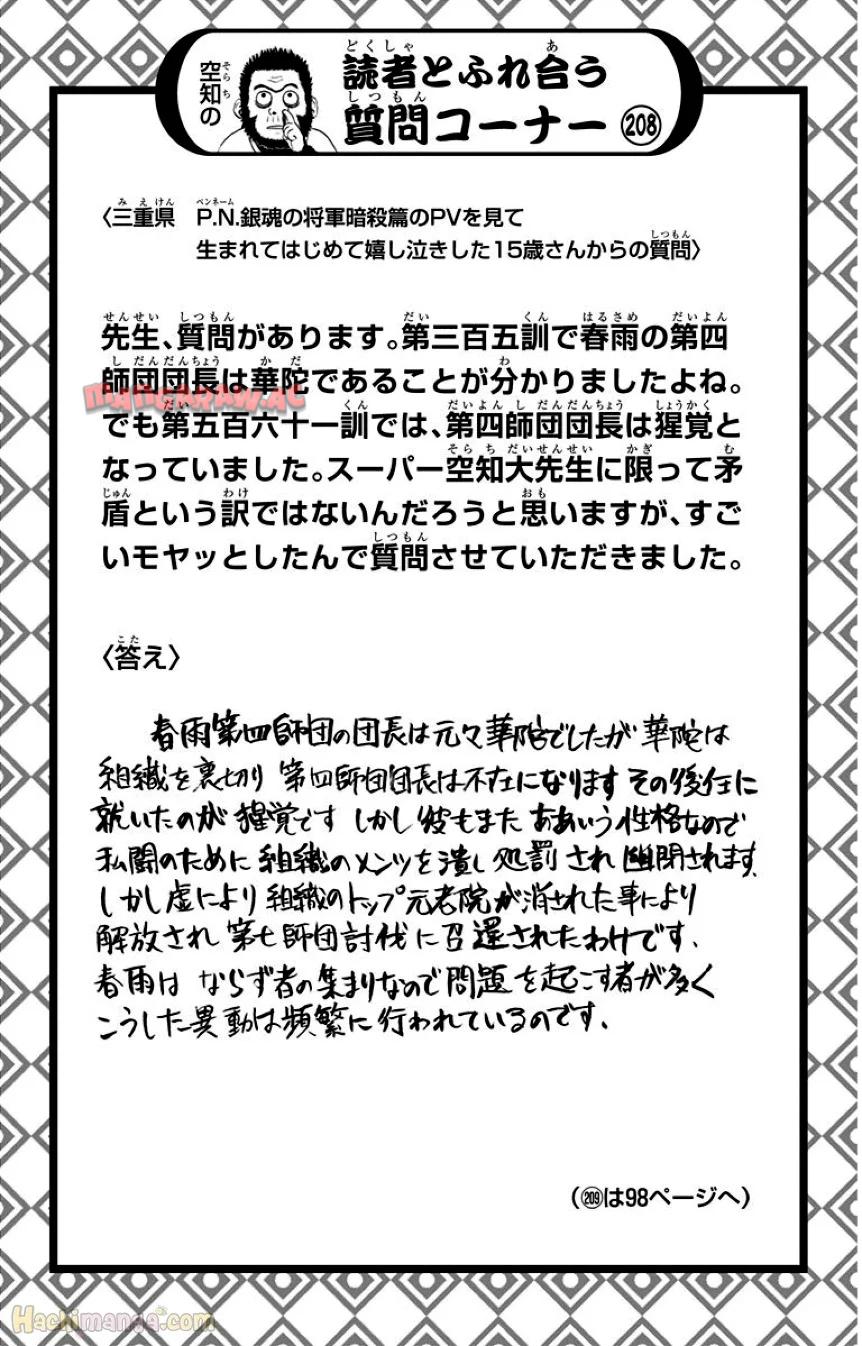 空知の
読者とふれ合う
質問コーナー 208
〈三重県 P.N.銀魂の将軍暗殺篇のPVを見て
生まれてはじめて嬉し泣きした15歳さんからの質問〉
先生、質問があります。第三百五訓で春雨の第四
師団団長は華陀であることが分かりましたよね。
MANGARAW.AC
でも第五百六十一訓では、第四師団団長は猩覚と
なっていました。スーパー空知大先生に限って矛
盾という訳ではないんだろうと思いますが、すご
いモヤッとしたんで質問させていただきました。
〈答え〉
春雨第四師団の団長は元々華陀でしたが華陀は
組織を裏切り 第四師団団長は不在になります その後任に
就いたのが 猩覚です しかし彼もまた ああいう性格なので
私闘のために 組織のメンツを潰し 処罰され 幽閉されます、
しかし虚により 組織のトップ元老院が消された事により
解放され 第七師団討伐に召還されたわけです、
春雨は ならず者の集まりなので問題を起こす者が多く
こうした異動は頻繁に行われているのです、
（209は98ページへ）
Hachimanga.com